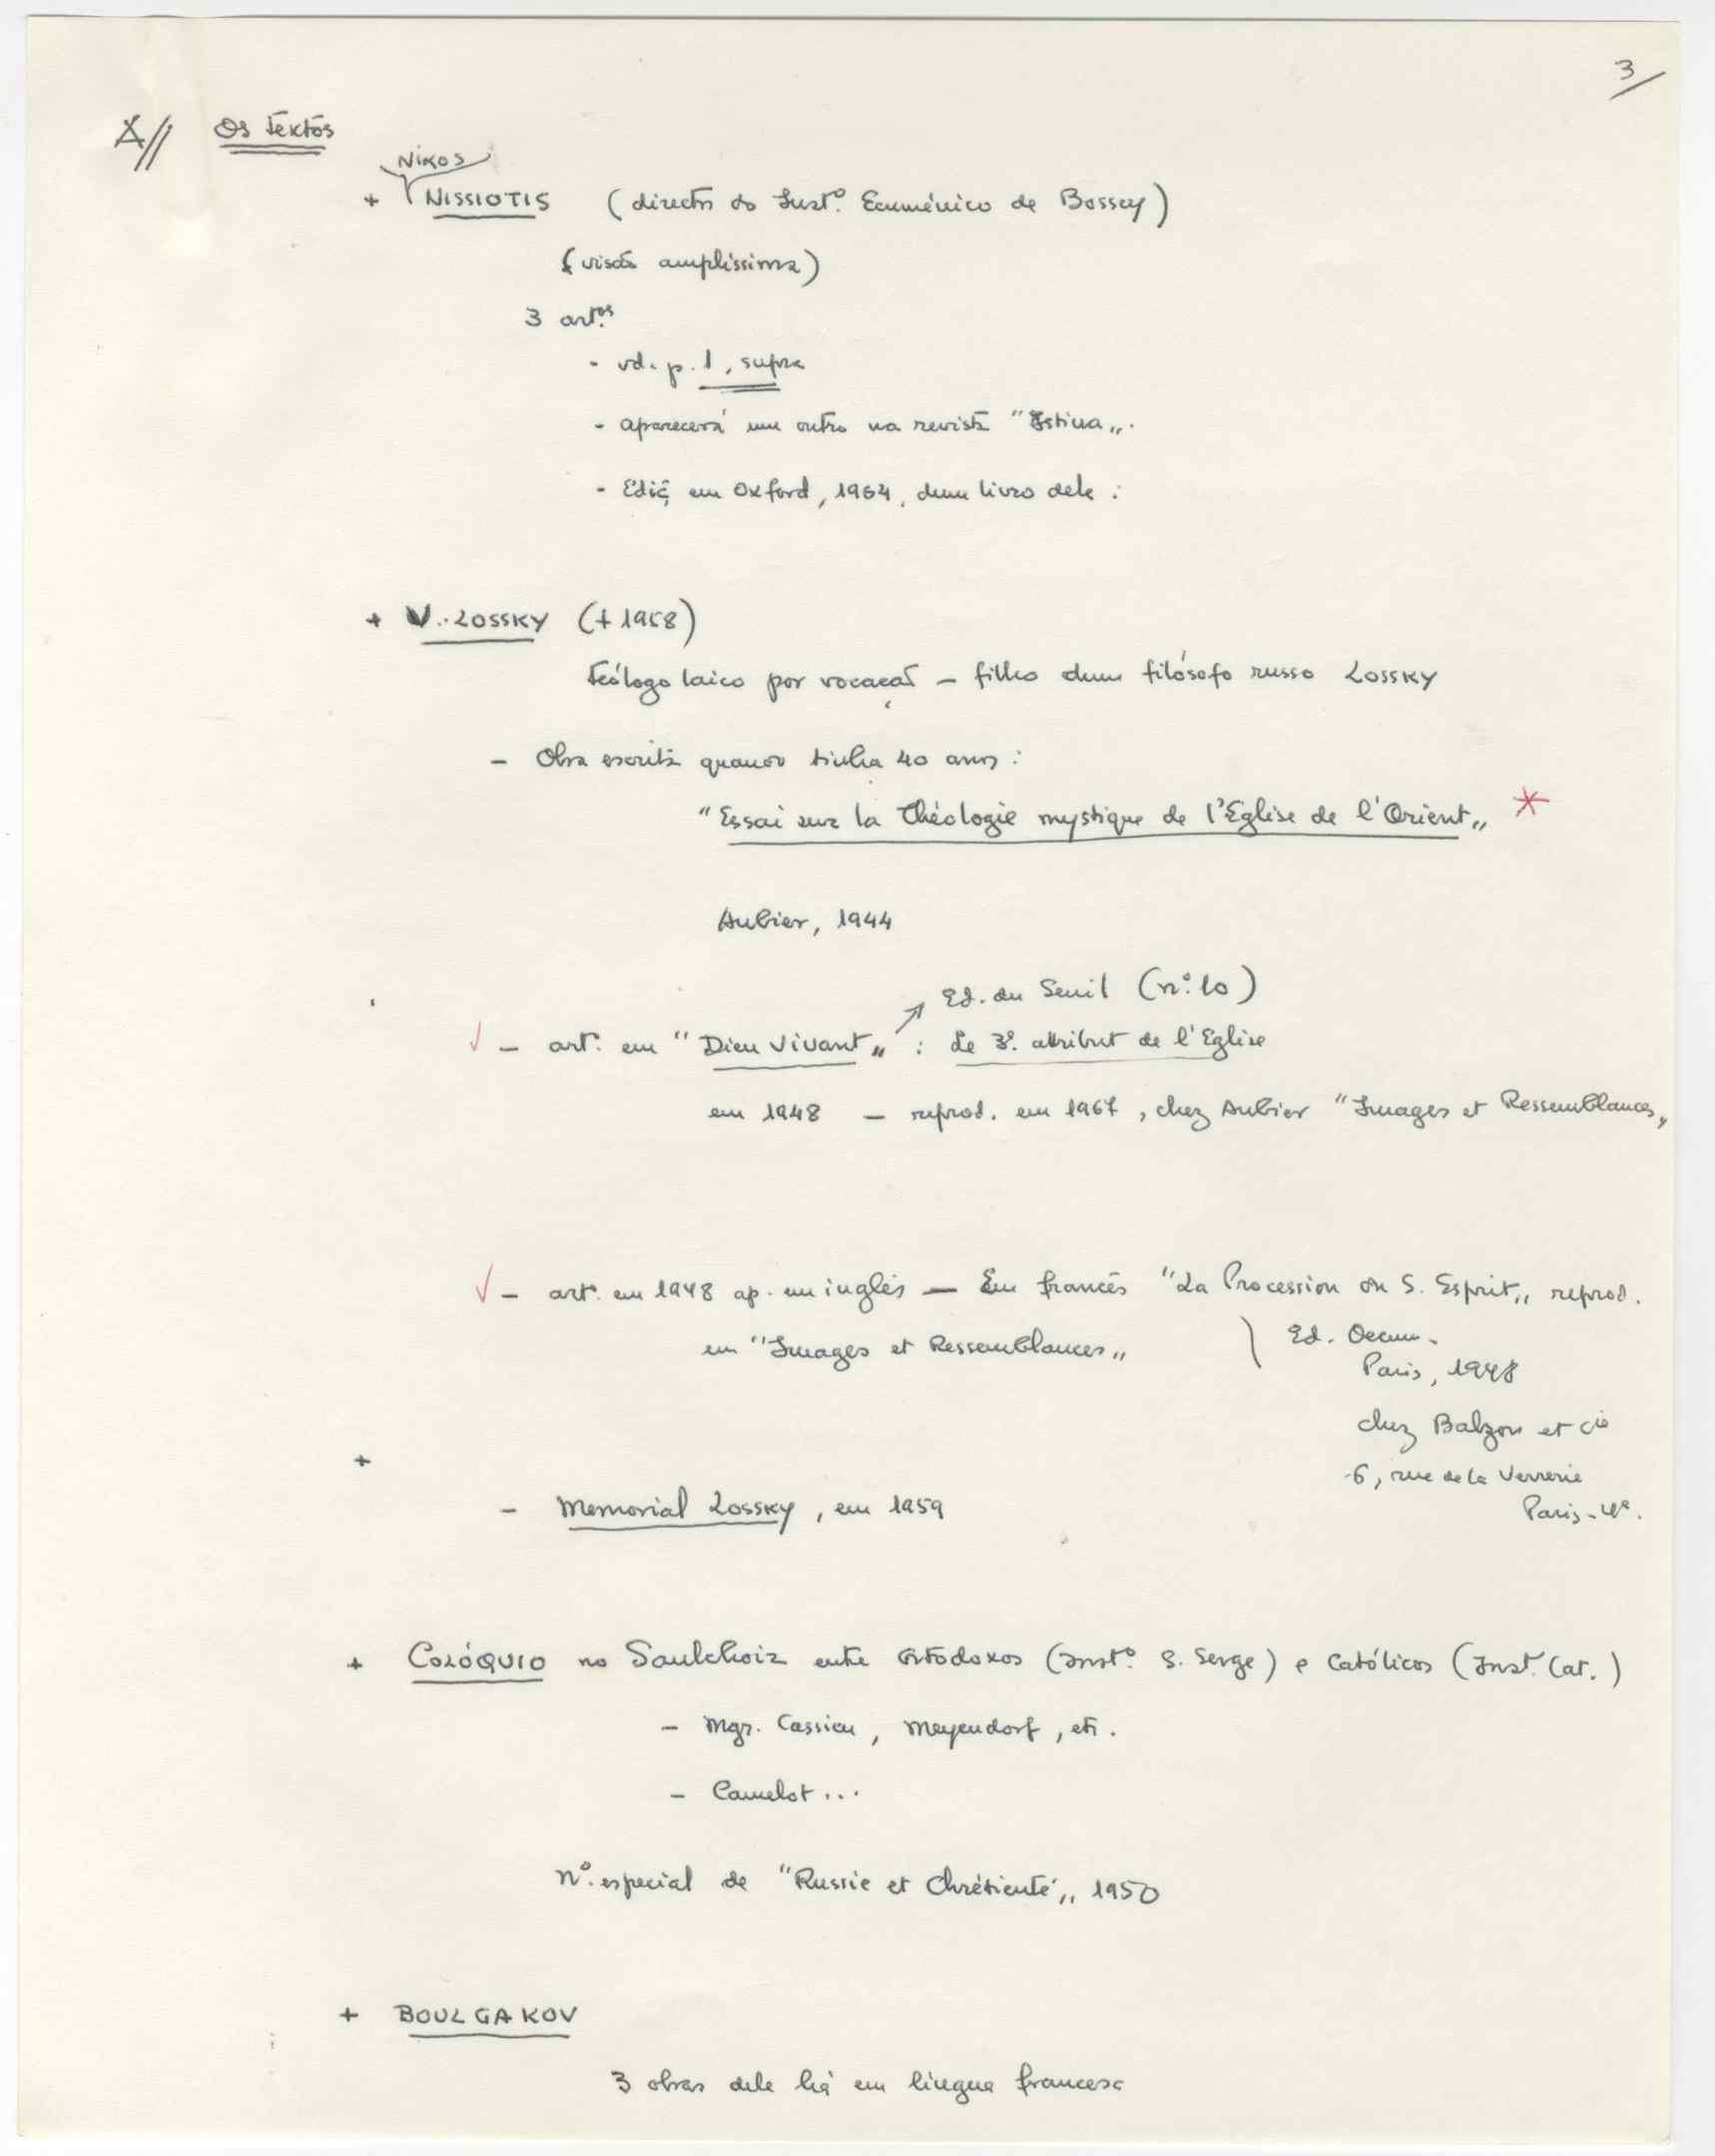 3/
A// Os textos
Nikos
+ NISSIOTIS (director do Inst.º Ecuménico de Bossey)
(visão amplíssima)
3 art.os
- vd. p. 1, supra
- aparecerá um outro na revista "Istina".
- Ediç. em Oxford, 1964, dum livro dele :
+ V. LOSSKY (+ 1958)
teólogo laico por vocação – filho dum filósofo russo LOSSKY
– Obra escrita quando tinha 40 anos :
"Essai sur la théologie mystique de l'Eglise de l'Orient" *
Aubier, 1944
Ed. du Seuil (n.º 10)
✓ – art. em "Dieu Vivant" : Le 3e. attribut de l'Eglise
em 1948 – reprod. em 1967, chez Aubier "Images et Ressemblances"
✓ – art. em 1948 ap. em inglês – Em francês "La Procession du S. Esprit" reprod.
em "Images et Ressemblances"
Ed. Oecum.
Paris, 1948
chez Balzon et cie
6, rue de la Verrerie
Paris-4e.
+
– Memorial Lossky, em 1959
+ COLÓQUIO no Saulchoir entre Ortodoxos (Inst.º S. Serge) e Católicos (Inst. Cat.)
– Mgr. Cassien, Meyendorf, etc.
– Camelot ...
N.º especial de "Russie et Chrétienté", 1950
+ BOULGAKOV
3 obras dele há em língua francesa